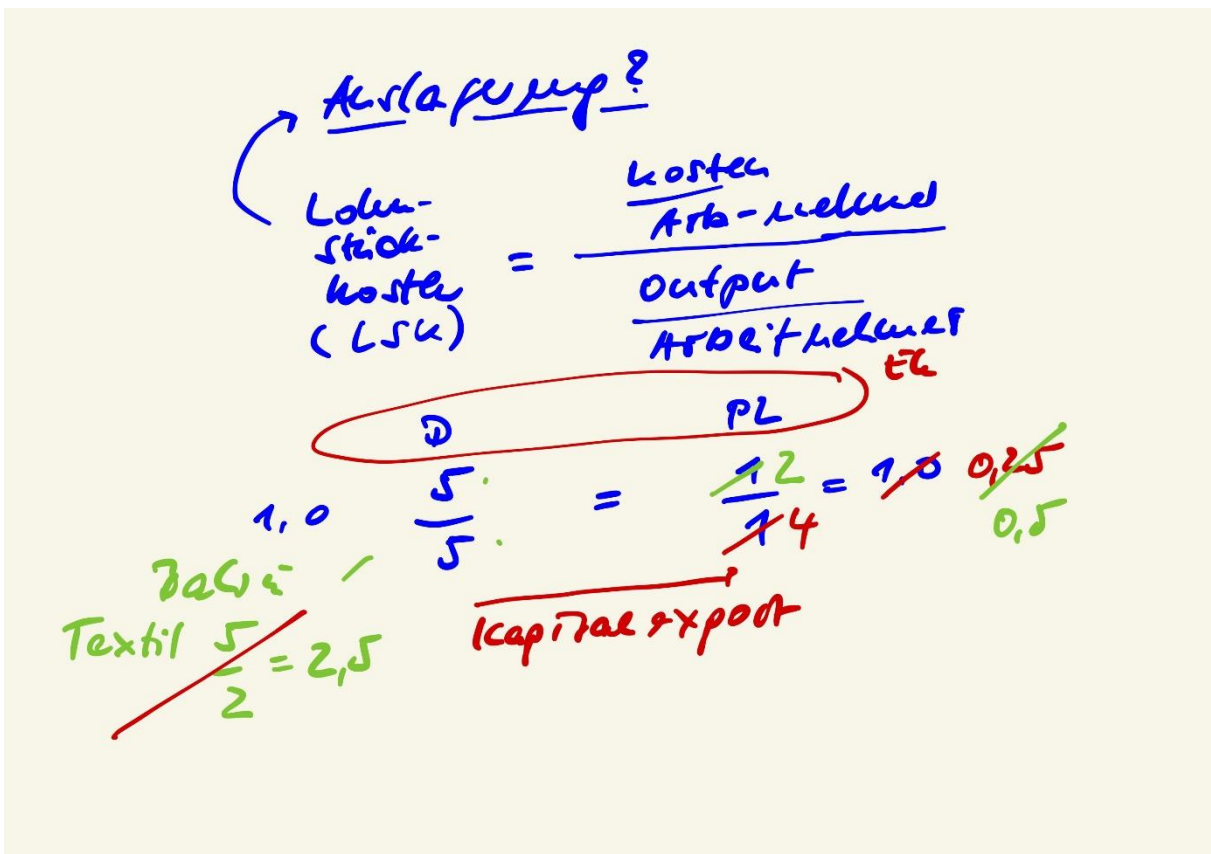 Auslagerung?
Lohn-
stück-
kosten
(LSK)
=
Kosten
Arb-nehmer
Output
Arbeitnehmer
D PL
1,0 5 = 1 2 = 1,0 0,25
5 1 4 0,5
Textil 5 = 2,5
2
Kapitalexport